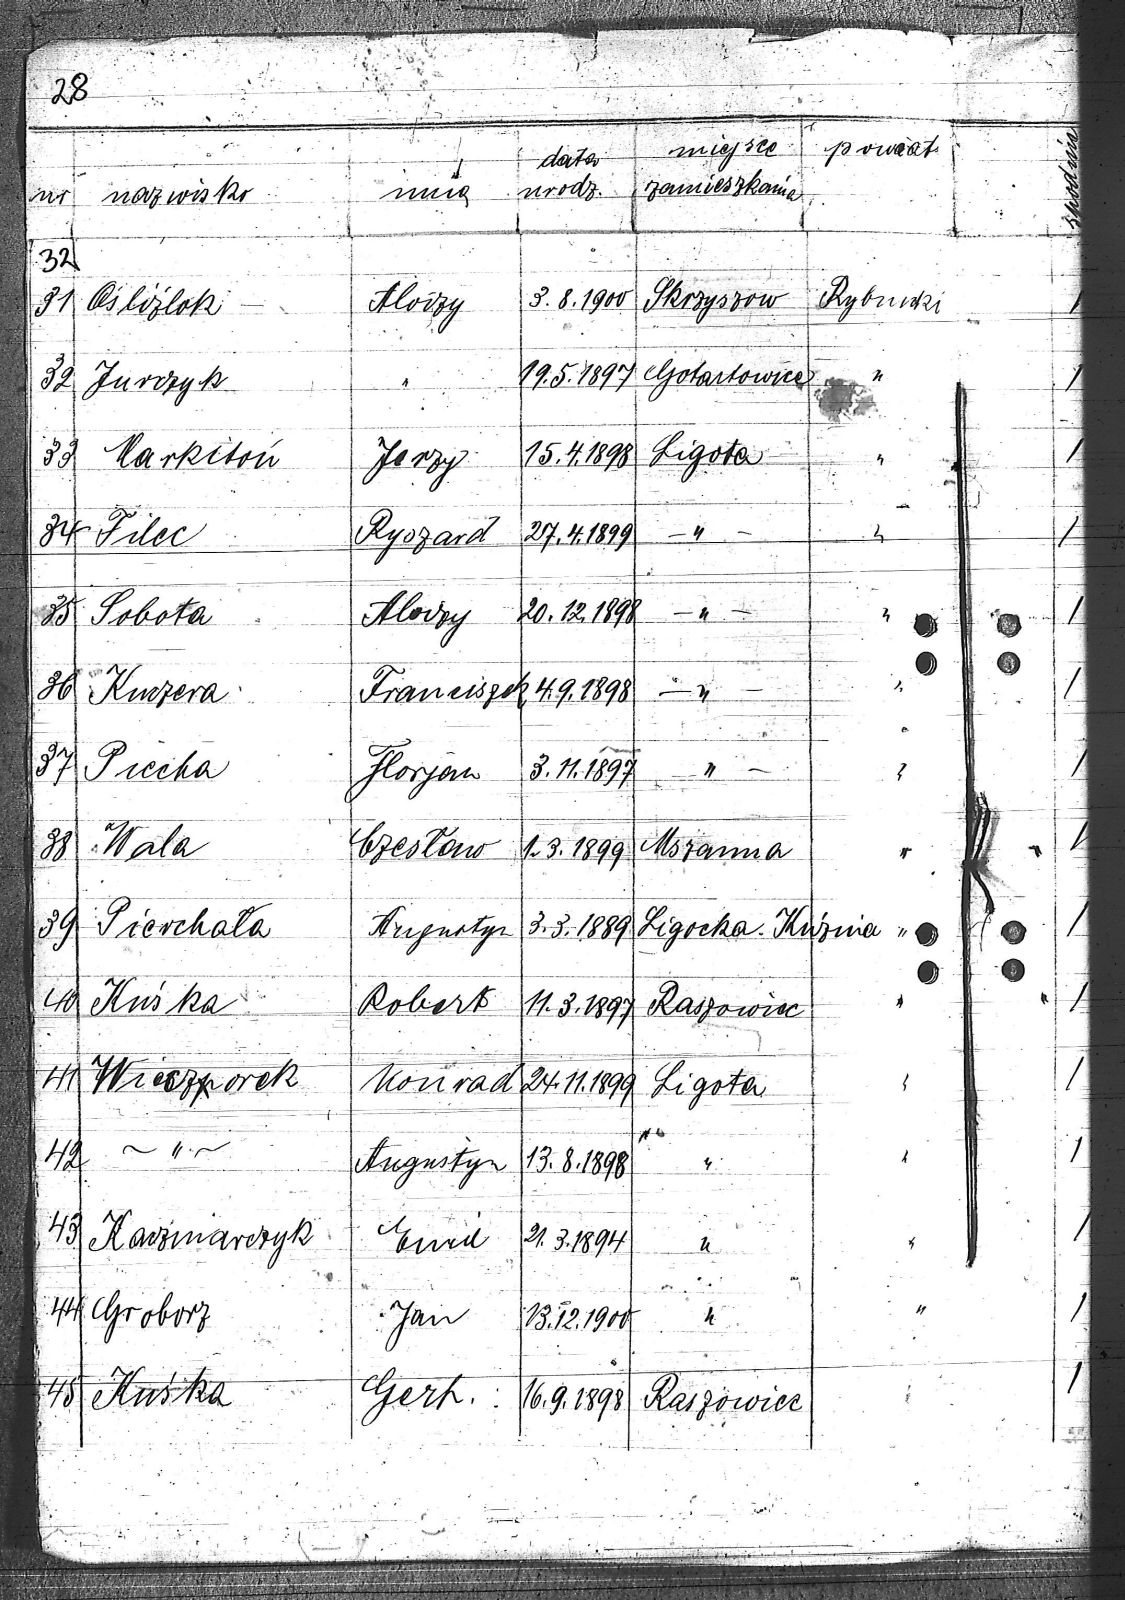 28
nr nazwisko imię data urodz. miejsce zamieszkania powiat spodnia
32
31 Ośliźlok Alojzy 3.8.1900 Skrzyszow Rybnicki 1
32 Jurczyk " 19.5.1897 Gotartowice " 1
33 Markiton Jerzy 15.4.1898 Ligota " 1
34 Filec Ryszard 27.4.1899 – " – " 1
35 Sobota Alojzy 20.12.1898 – " – " 1
36 Kuczera Franciszek 4.9.1898 – " – " 1
37 Piecha Florjan 3.11.1897 " – " 1
38 Wala Czesław 1.3.1899 Mszanna " " 1
39 Pierchała Augustyn 3.3.1889 Ligocka-Kuźnia " 1
40 Kuśka Robert 11.3.1897 Raszowiec " " 1
41 Wieczorek Konrad 24.11.1899 Ligota " 1
42 ~ " ~ Augustyn 13.8.1898 " " 1
43 Kaczmarczyk Emil 21.3.1894 " " 1
44 Groborz Jan 13.12.1900 " " 1
45 Kuśka Gerh. 16.9.1898 Raszowiec " 1